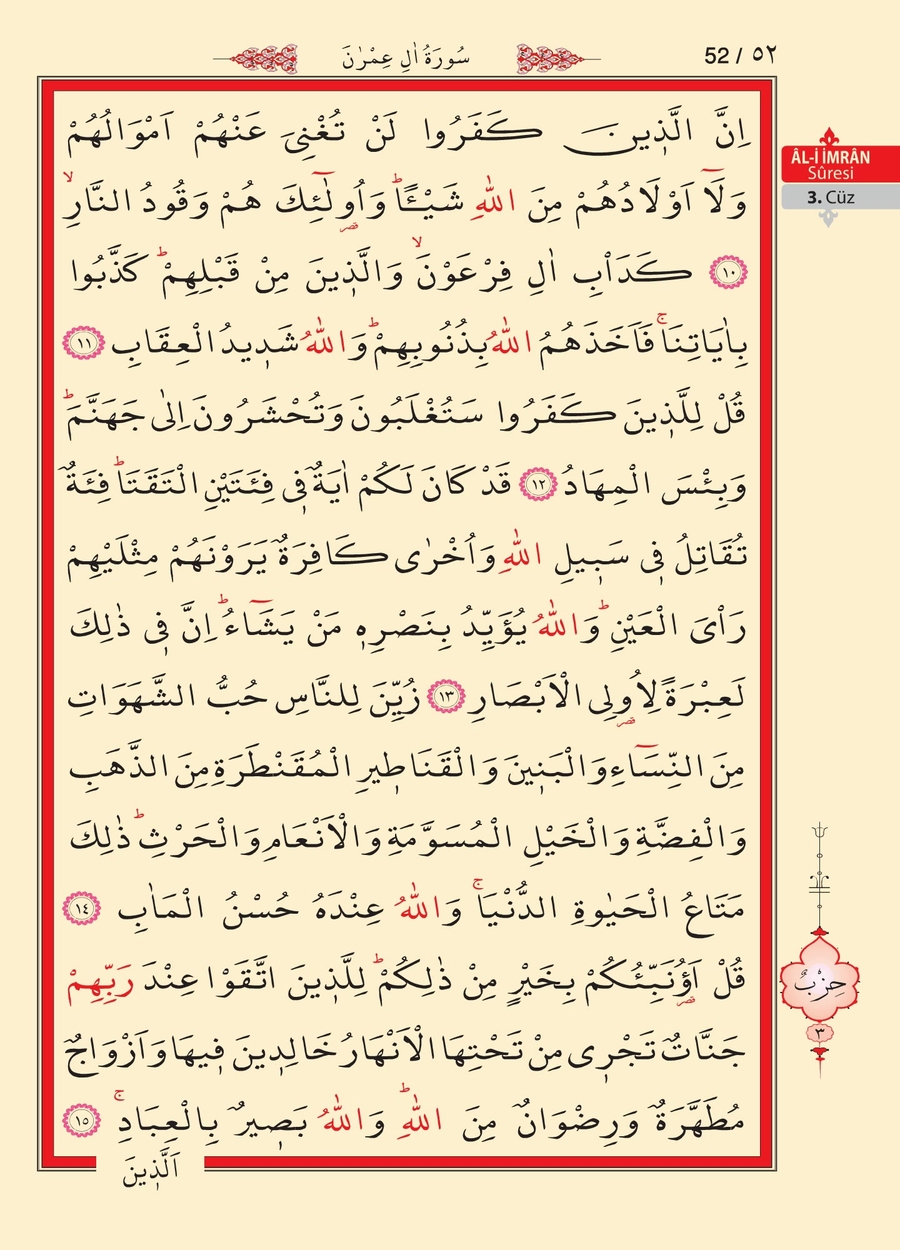 سُورَةُ اٰلِ عِمْرٰنَ
52 / ٥٢
ÂL-İ İMRÂN
Sûresi
3. Cüz
اِنَّ الَّذ۪ينَ كَفَرُوا لَنْ تُغْنِيَ عَنْهُمْ اَمْوَالُهُمْ
وَلَٓا اَوْلَادُهُمْ مِنَ اللّٰهِ شَيْـًٔاۜ وَاُو۬لٰٓئِكَ هُمْ وَقُودُ النَّارِۙ
﴿١٠﴾ كَدَاْبِ اٰلِ فِرْعَوْنَۙ وَالَّذ۪ينَ مِنْ قَبْلِهِمْۜ كَذَّبُوا
بِاٰيَاتِنَاۚ فَاَخَذَهُمُ اللّٰهُ بِذُنُوبِهِمْۜ وَاللّٰهُ شَد۪يدُ الْعِقَابِ ﴿١١﴾
قُلْ لِلَّذ۪ينَ كَفَرُوا سَتُغْلَبُونَ وَتُحْشَرُونَ اِلٰى جَهَنَّمَۜ
وَبِئْسَ الْمِهَادُ ﴿١٢﴾ قَدْ كَانَ لَكُمْ اٰيَةٌ ف۪ي فِئَتَيْنِ الْتَقَتَاۜ فِئَةٌ
تُقَاتِلُ ف۪ي سَب۪يلِ اللّٰهِ وَاُخْرٰى كَافِرَةٌ يَرَوْنَهُمْ مِثْلَيْهِمْ
رَاْيَ الْعَيْنِۜ وَاللّٰهُ يُؤَيِّدُ بِنَصْرِه۪ مَنْ يَشَٓاءُۜ اِنَّ ف۪ي ذٰلِكَ
لَعِبْرَةً لِاُو۬لِي الْاَبْصَارِ ﴿١٣﴾ زُيِّنَ لِلنَّاسِ حُبُّ الشَّهَوَاتِ
مِنَ النِّسَٓاءِ وَالْبَن۪ينَ وَالْقَنَاط۪يرِ الْمُقَنْطَرَةِ مِنَ الذَّهَبِ
وَالْفِضَّةِ وَالْخَيْلِ الْمُسَوَّمَةِ وَالْاَنْعَامِ وَالْحَرْثِۜ ذٰلِكَ
مَتَاعُ الْحَيٰوةِ الدُّنْيَاۚ وَاللّٰهُ عِنْدَهُ حُسْنُ الْمَاٰبِ ﴿١٤﴾
قُلْ اَؤُ۬نَبِّئُكُمْ بِخَيْرٍ مِنْ ذٰلِكُمْۜ لِلَّذ۪ينَ اتَّقَوْا عِنْدَ رَبِّهِمْ
جَنَّاتٌ تَجْر۪ي مِنْ تَحْتِهَا الْاَنْهَارُ خَالِد۪ينَ ف۪يهَا وَاَزْوَاجٌ
مُطَهَّرَةٌ وَرِضْوَانٌ مِنَ اللّٰهِۜ وَاللّٰهُ بَص۪يرٌ بِالْعِبَادِۚ ﴿١٥﴾
اَلَّذ۪ينَ
حِزْبٌ
٣